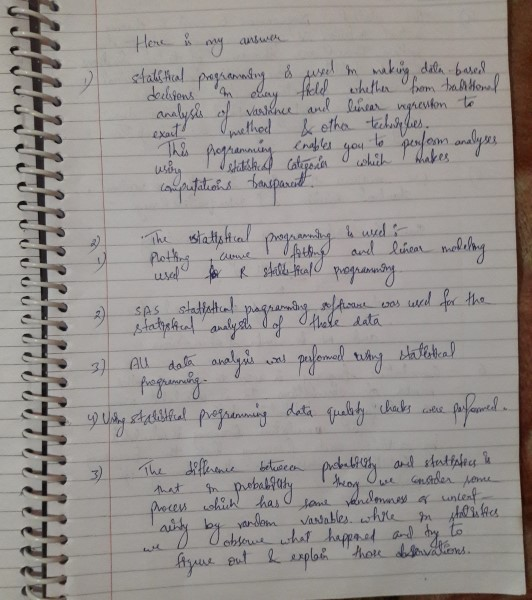 Here is my answer
1) statistical programming is used in making data-based
decisions in every field whether from traditional
analysis of variance and linear regression to
exact method & other techniques.
This programming enables you to perform analyses
using statistical categories which makes
computations transparent.
2) The statistical programming is used :-
1) Plotting, curve fitting and linear modeling
used R statistical programming
2) SAS statistical programming software was used for the
statistical analysis of these data
3) All data analysis was performed using statistical
programming.
4) Using statistical programming data quality checks were performed.
3) The difference between probability and statistics is
that in probability theory we consider some
process which has some randomness or uncert-
ainity by random variables. while in statistics
we observe what happened and try to
figure out & explain those observations.